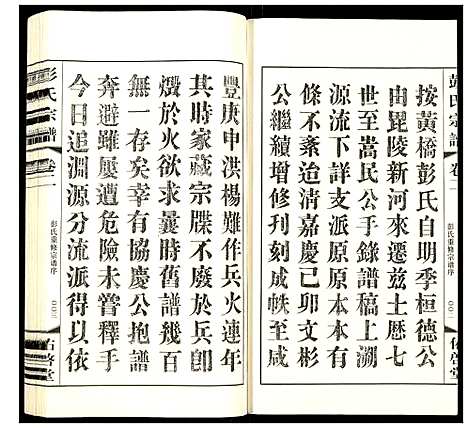 彭氏宗譜 卷一
按黃橋彭氏自明季桓德公
由毘陵新河來遷兹土歷七
世至蒿民公手錄譜稿上溯
源流下詳支派原原本本有
條不紊迨清嘉慶己卯文彬
公繼續增修刊刻成帙至咸
彭氏重修宗譜序
〇〇二
佑啓堂
豐庚申洪楊難作兵火連年
其時家藏宗牒不厄於兵卽
燬於火欲求曩時舊譜幾百
無一存矣幸有協慶公抱譜
奔避雖屢遭危險未甞釋手
今日追淵源分流派得以依
彭氏宗譜 卷一
彭氏重修宗譜序
〇〇三
佑啓堂